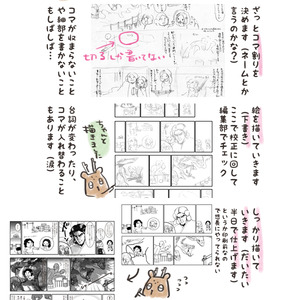 ざっとコマ割りを
決めます（ネームとか
言うのかな？）
切るしか書いてない！
コマが収まらないこと
や細部を書かないこと
もしばしば…
絵を描いていきます
（下書き）
ここで校正に回して
編集部でチェック
ちゃんと
描きます
台詞が変わったり、
コマが入れ替わること
もあります（涙）
しっかり描いて
いきます（だいたい
半日で仕上げます）